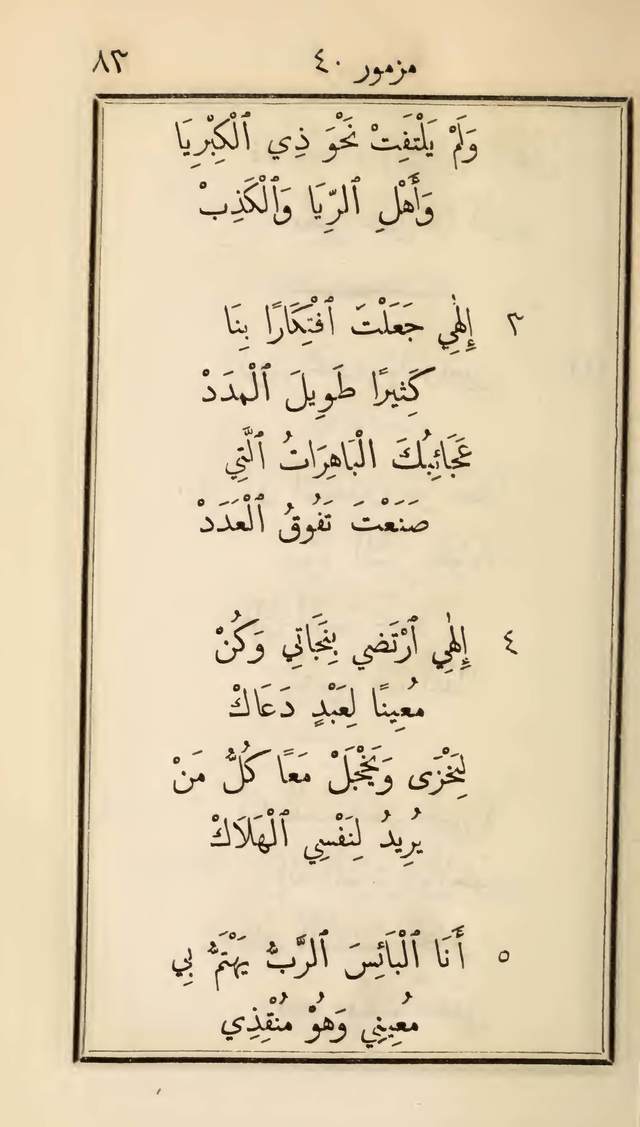 مزمور ٤٠ ٨٣
وَلَمْ يَلْتَفِتْ نَحْوَ ذِي ٱلْكِبْرِيَا
وَأَهْلِ ٱلرِّيَا وَٱلْكَذِبْ
٣ إِلٰهِي جَعَلْتَ ٱفْتِكَارًا بِنَا
كَثِيرًا طَوِيلَ ٱلْمدَدْ
عَجَائِبُكَ الْبَاهِرَاتُ ٱلَّتِي
صَنَعْتَ تَفُوقُ ٱلْعَدَدْ
٤ إِلٰهِي ٱرْتَضِي بِنَجَاتِي وَكُنْ
مُعِينًا لِعَبْدٍ دَعَاكْ
لِيَخْزَى وَيَخْجَلْ مَعًا كُلُّ مَنْ
يُرِيدُ لِنَفْسِي ٱلْهَلَاكْ
٥ أَنَا ٱلْبَائِسَ ٱلرَّبُّ يَهْتَمُّ بِي
مُعِينِي وَهُوْ مُنْقِذِي